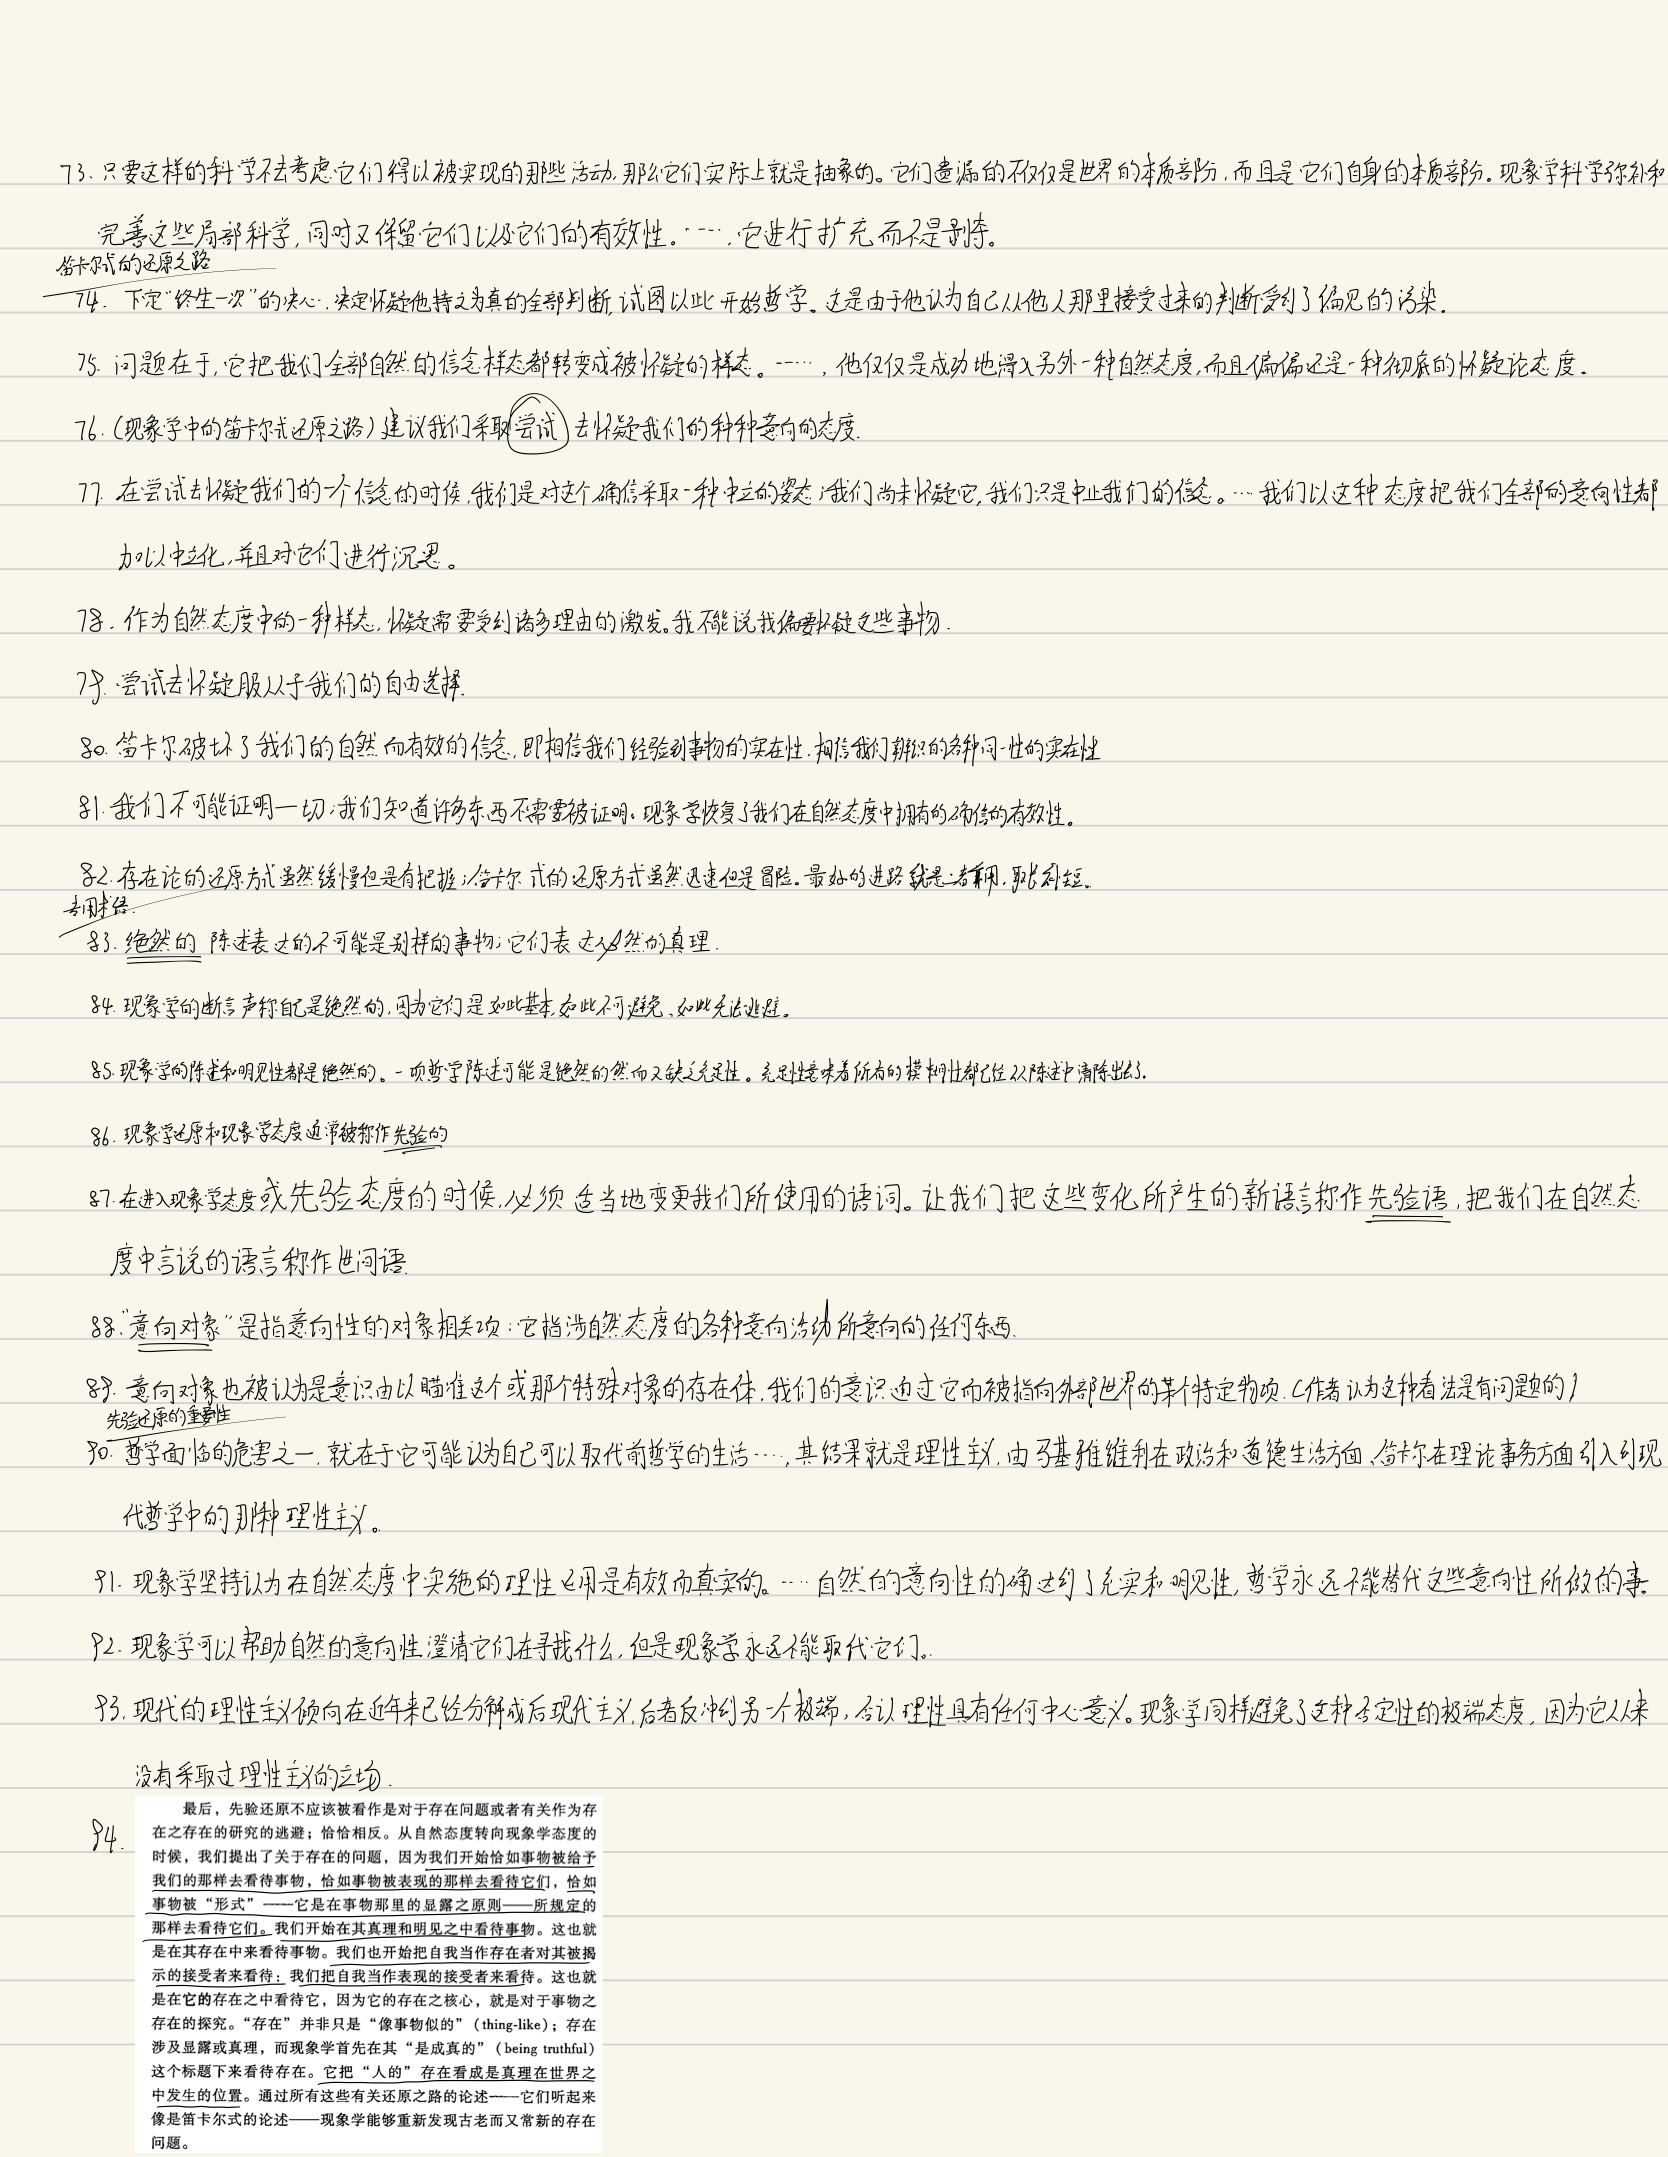 73. 只要这样的科学不去考虑它们得以被实现的那些活动，那么它们实际上就是抽象的。它们遗漏的不仅仅是世界的本质部分，而且是它们自身的本质部分。现象学科学弥补和
完善这些局部科学，同时又保留它们以及它们的有效性。……，它进行扩充而不是剥夺。
笛卡尔式的还原之路
74. 下定“终生一次”的决心，决定怀疑他持之为真的全部判断，试图以此开始哲学。这是由于他认为自己从他人那里接受过来的判断受到了偏见的污染．
75. 问题在于，它把我们全部自然的信念样态都转变成被怀疑的样态。……，他仅仅是成功地滑入另外一种自然态度，而且偏偏还是一种彻底的怀疑论态度．
76.（现象学中的笛卡尔式还原之路）建议我们采取尝试去怀疑我们的种种意向的态度．
77. 在尝试去怀疑我们的一个信念的时候，我们是对这个确信采取一种中立的姿态；我们尚未怀疑它，我们只是中止我们的信念。…我们以这种态度把我们全部的意向性都
加以中立化，并且对它们进行沉思。
78. 作为自然态度中的一种样态，怀疑需要受到诸多理由的激发。我不能说我偏要怀疑这些事物．
79. 尝试去怀疑服从于我们的自由选择．
80. 笛卡尔破坏了我们的自然而有效的信念，即相信我们经验到事物的实在性，相信我们辨识的各种同一性的实在性
81. 我们不可能证明一切；我们知道许多东西不需要被证明。现象学恢复了我们在自然态度中拥有的确信的有效性。
82. 存在论的还原方式虽然缓慢但是有把握；笛卡尔式的还原方式虽然迅速但是冒险。最好的进路就是二者兼用，取长补短．
专用术语．
83. 绝然的陈述表达的不可能是别样的事物；它们表达必然的真理．
84. 现象学的断言声称自己是绝然的，因为它们是如此基本，如此不可避免、如此无法逃避。
85. 现象学的陈述和明见性都是绝然的。一项哲学陈述可能是绝然的然而又缺乏充足性。充足性意味着所有的模糊性都已经从陈述中清除出去了．
86. 现象学还原和现象学态度通常被称作先验的
87. 在进入现象学态度或先验态度的时候，必须适当地变更我们所使用的语词。让我们把这些变化所产生的新语言称作先验语，把我们在自然态
度中言说的语言称作世间语．
88. “意向对象”是指意向性的对象相关项；它指涉自然态度的各种意向活动所意向的任何东西．
89. 意向对象也被认为是意识由以瞄准这个或那个特殊对象的存在体，我们的意识通过它而被指向外部世界的某个特定物项．（作者认为这种看法是有问题的）
先验还原的重要性
90. 哲学面临的危害之一，就在于它可能认为自己可以取代前哲学的生活……，其结果就是理性主义，由马基雅维利在政治和道德生活方面、笛卡尔在理论事务方面引入到现
代哲学中的那种理性主义。
91. 现象学坚持认为在自然态度中实施的理性运用是有效而真实的。……自然的意向性的确达到了充实和明见性，哲学永远不能替代这些意向性所做的事．
92. 现象学可以帮助自然的意向性澄清它们在寻找什么，但是现象学永远不能取代它们。
93. 现代的理性主义倾向在近年来已经分解成后现代主义，后者反冲到另一个极端，否认理性具有任何中心意义。现象学同样避免了这种否定性的极端态度，因为它从来
没有采取过理性主义的立场．
94.
最后，先验还原不应该被看作是对于存在问题或者有关作为存
在之存在的研究的逃避；恰恰相反。从自然态度转向现象学态度的
时候，我们提出了关于存在的问题，因为我们开始恰如事物被给予
我们的那样去看待事物，恰如事物被表现的那样去看待它们，恰如
事物被“形式”——它是在事物那里的显露之原则——所规定的
那样去看待它们。我们开始在其真理和明见之中看待事物。这也就
是在其存在中来看待事物。我们也开始把自我当作存在者对其被揭
示的接受者来看待：我们把自我当作表现的接受者来看待。这也就
是在它的存在之中看待它，因为它的存在之核心，就是对于事物之
存在的探究。“存在”并非只是“像事物似的”（thing-like）；存在
涉及显露或真理，而现象学首先在其“是成真的”（being truthful）
这个标题下来看待存在。它把“人的”存在看成是真理在世界之
中发生的位置。通过所有这些有关还原之路的论述——它们听起来
像是笛卡尔式的论述——现象学能够重新发现古老而又常新的存在
问题。